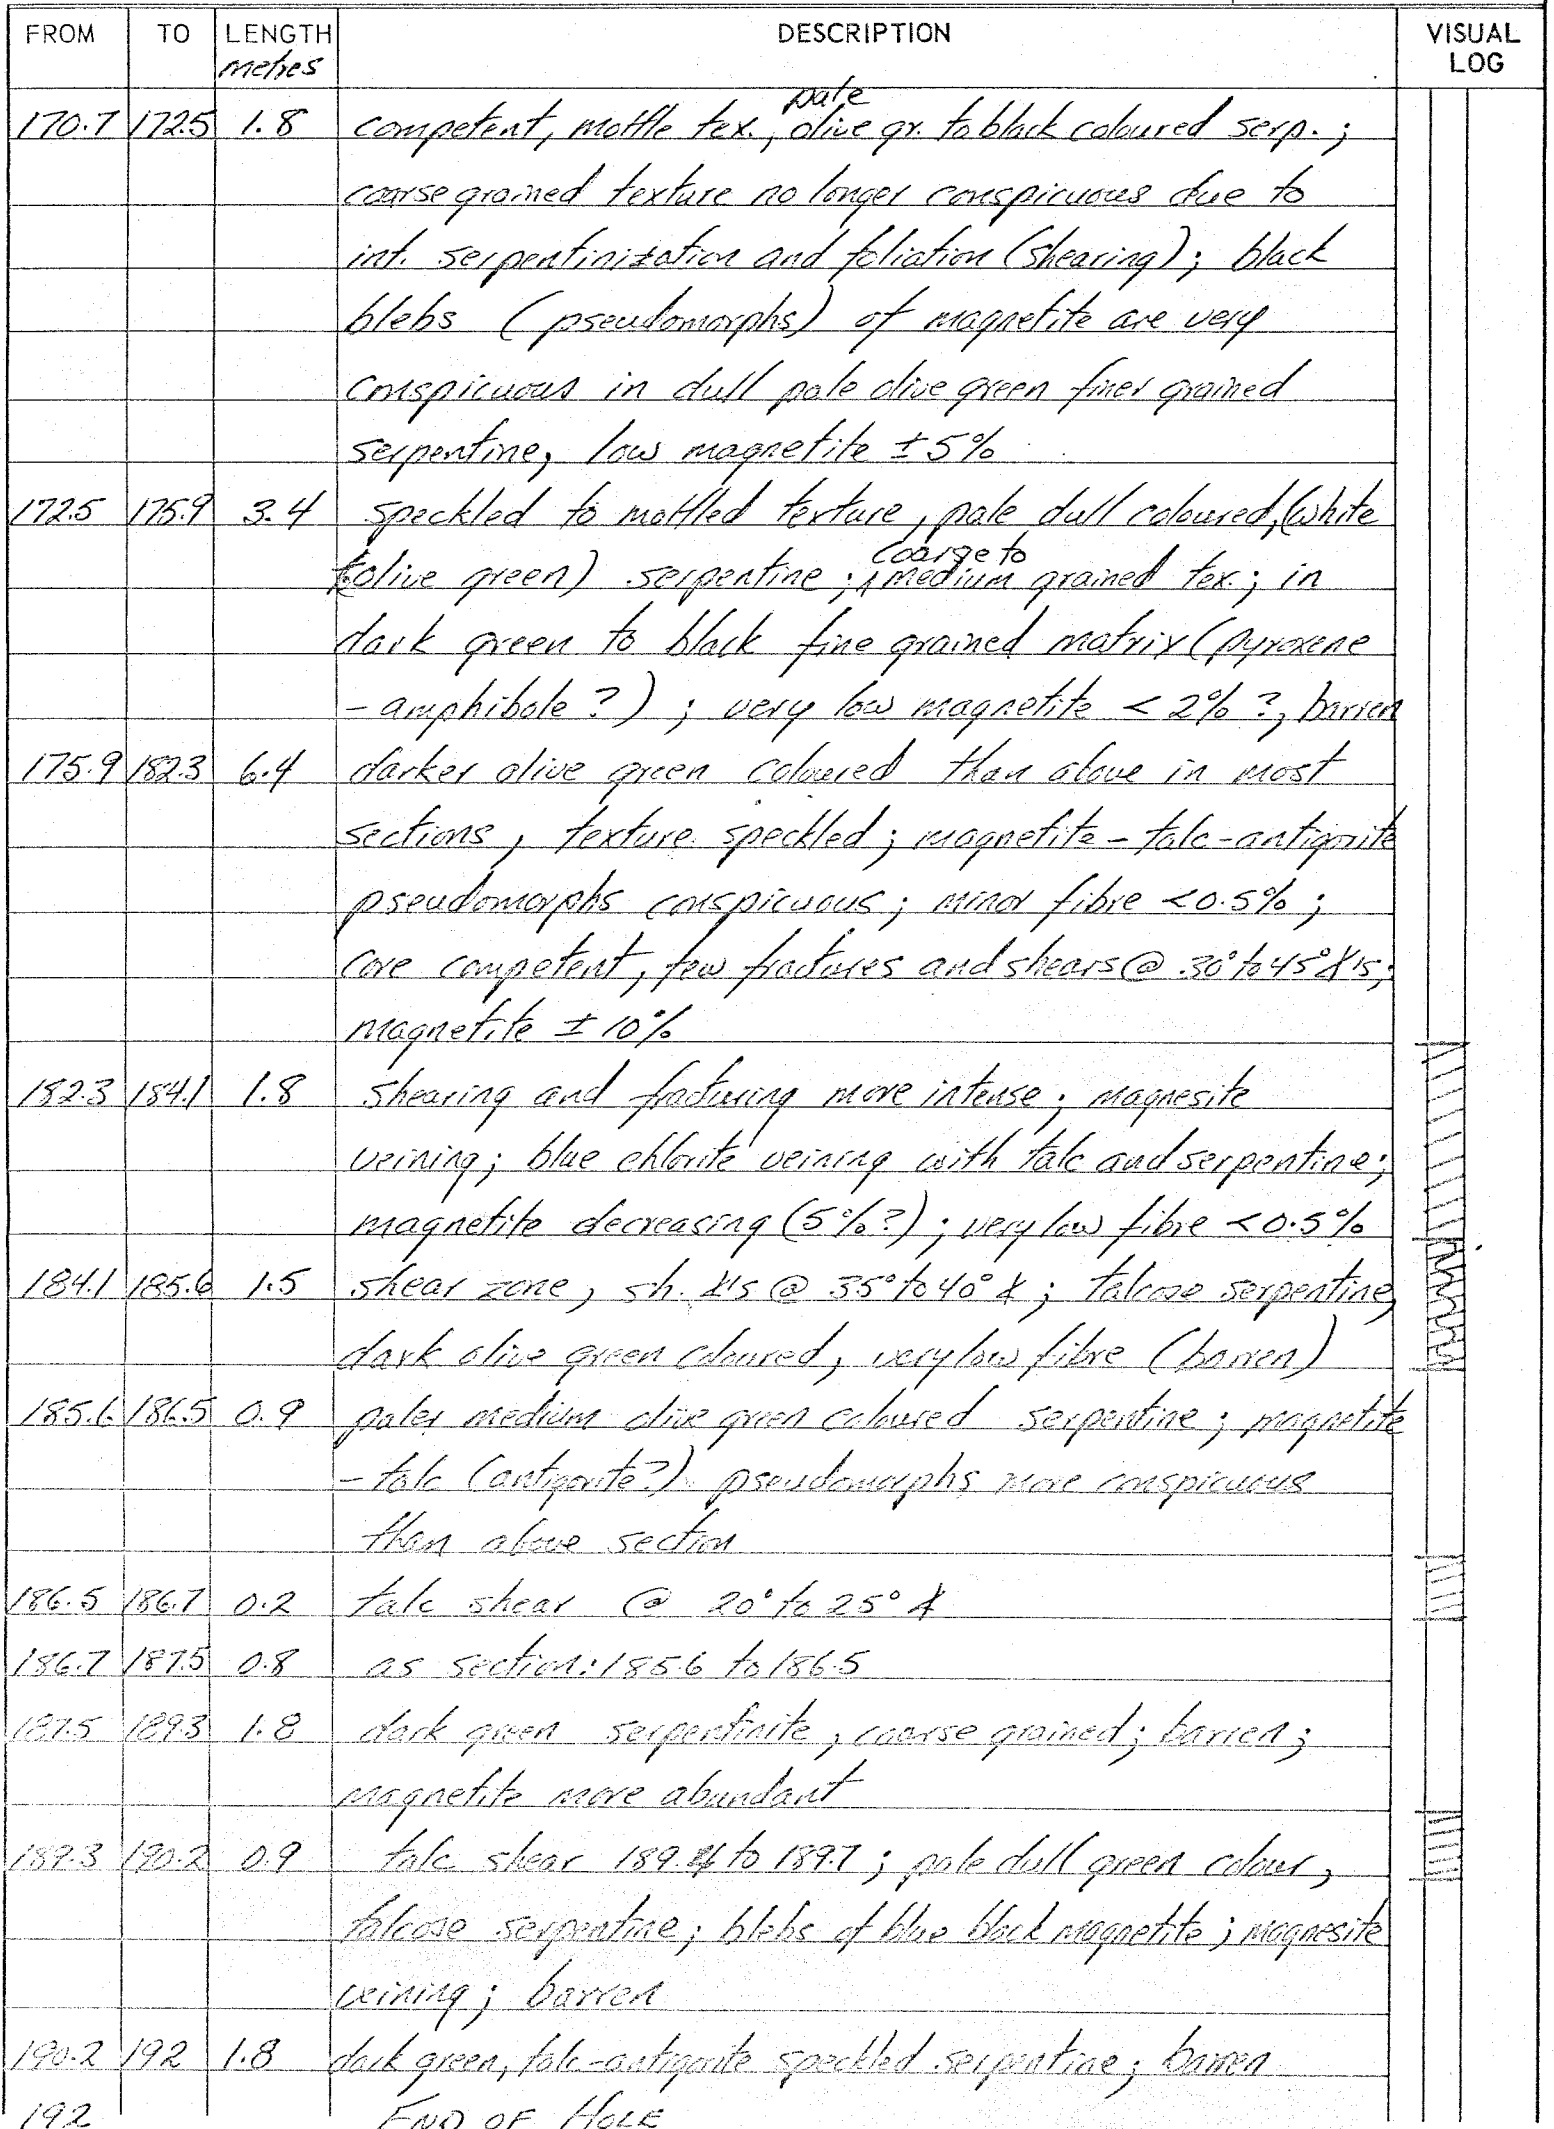 FROM TO LENGTH DESCRIPTION VISUAL
metres LOG
pale
170.7 172.5 1.8 competent, mottle tex., olive gr. to black coloured serp. ;
coarse grained texture no longer conspicuous due to
int. serpentinization and foliation (shearing) ; black
blebs (pseudomorphs) of magnetite are very
conspicuous in dull pale olive green finer grained
serpentine, low magnetite ± 5%
172.5 175.9 3.4 speckled to mottled texture, pale dull coloured, (white
coarse to
to olive green) serpentine ; medium grained tex. ; in
dark green to black fine grained matrix (pyroxene
- amphibole ?) ; very low magnetite < 2% ?, barren
175.9 182.3 6.4 darker olive green coloured than above in most
sections, texture speckled ; magnetite - talc - antigorite
pseudomorphs conspicuous ; minor fibre <0.5% ;
core competent, few fractures and shears @ 30° to 45° ∡'s ;
magnetite ± 10%
182.3 184.1 1.8 shearing and fracturing more intense ; magnesite
veining ; blue chlorite veining with talc and serpentine ;
magnetite decreasing (5%?) ; very low fibre <0.5%
184.1 185.6 1.5 shear zone, sh. ∡'s @ 35° to 40° ∡ ; talcose serpentine,
dark olive green coloured, very low fibre (barren)
185.6 186.5 0.9 paler medium olive green coloured serpentine ; magnetite
- talc (antigorite?) pseudomorphs more conspicuous
than above section
186.5 186.7 0.2 talc shear @ 20° to 25° ∡
186.7 187.5 0.8 as section: 185.6 to 186.5
187.5 189.3 1.8 dark green serpentinite, coarse grained ; barren ;
magnetite more abundant
189.3 190.2 0.9 talc shear 189.4 to 189.7 ; pale dull green colour,
talcose serpentine ; blebs of blue black magnetite ; magnesite
veining ; barren
190.2 192 1.8 dark green, talc-antigorite speckled serpentine ; barren
192 END OF HOLE